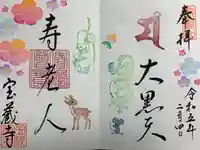 奉拝
令和五年
二月四日
大黒天
寿老人
宝蔵寺